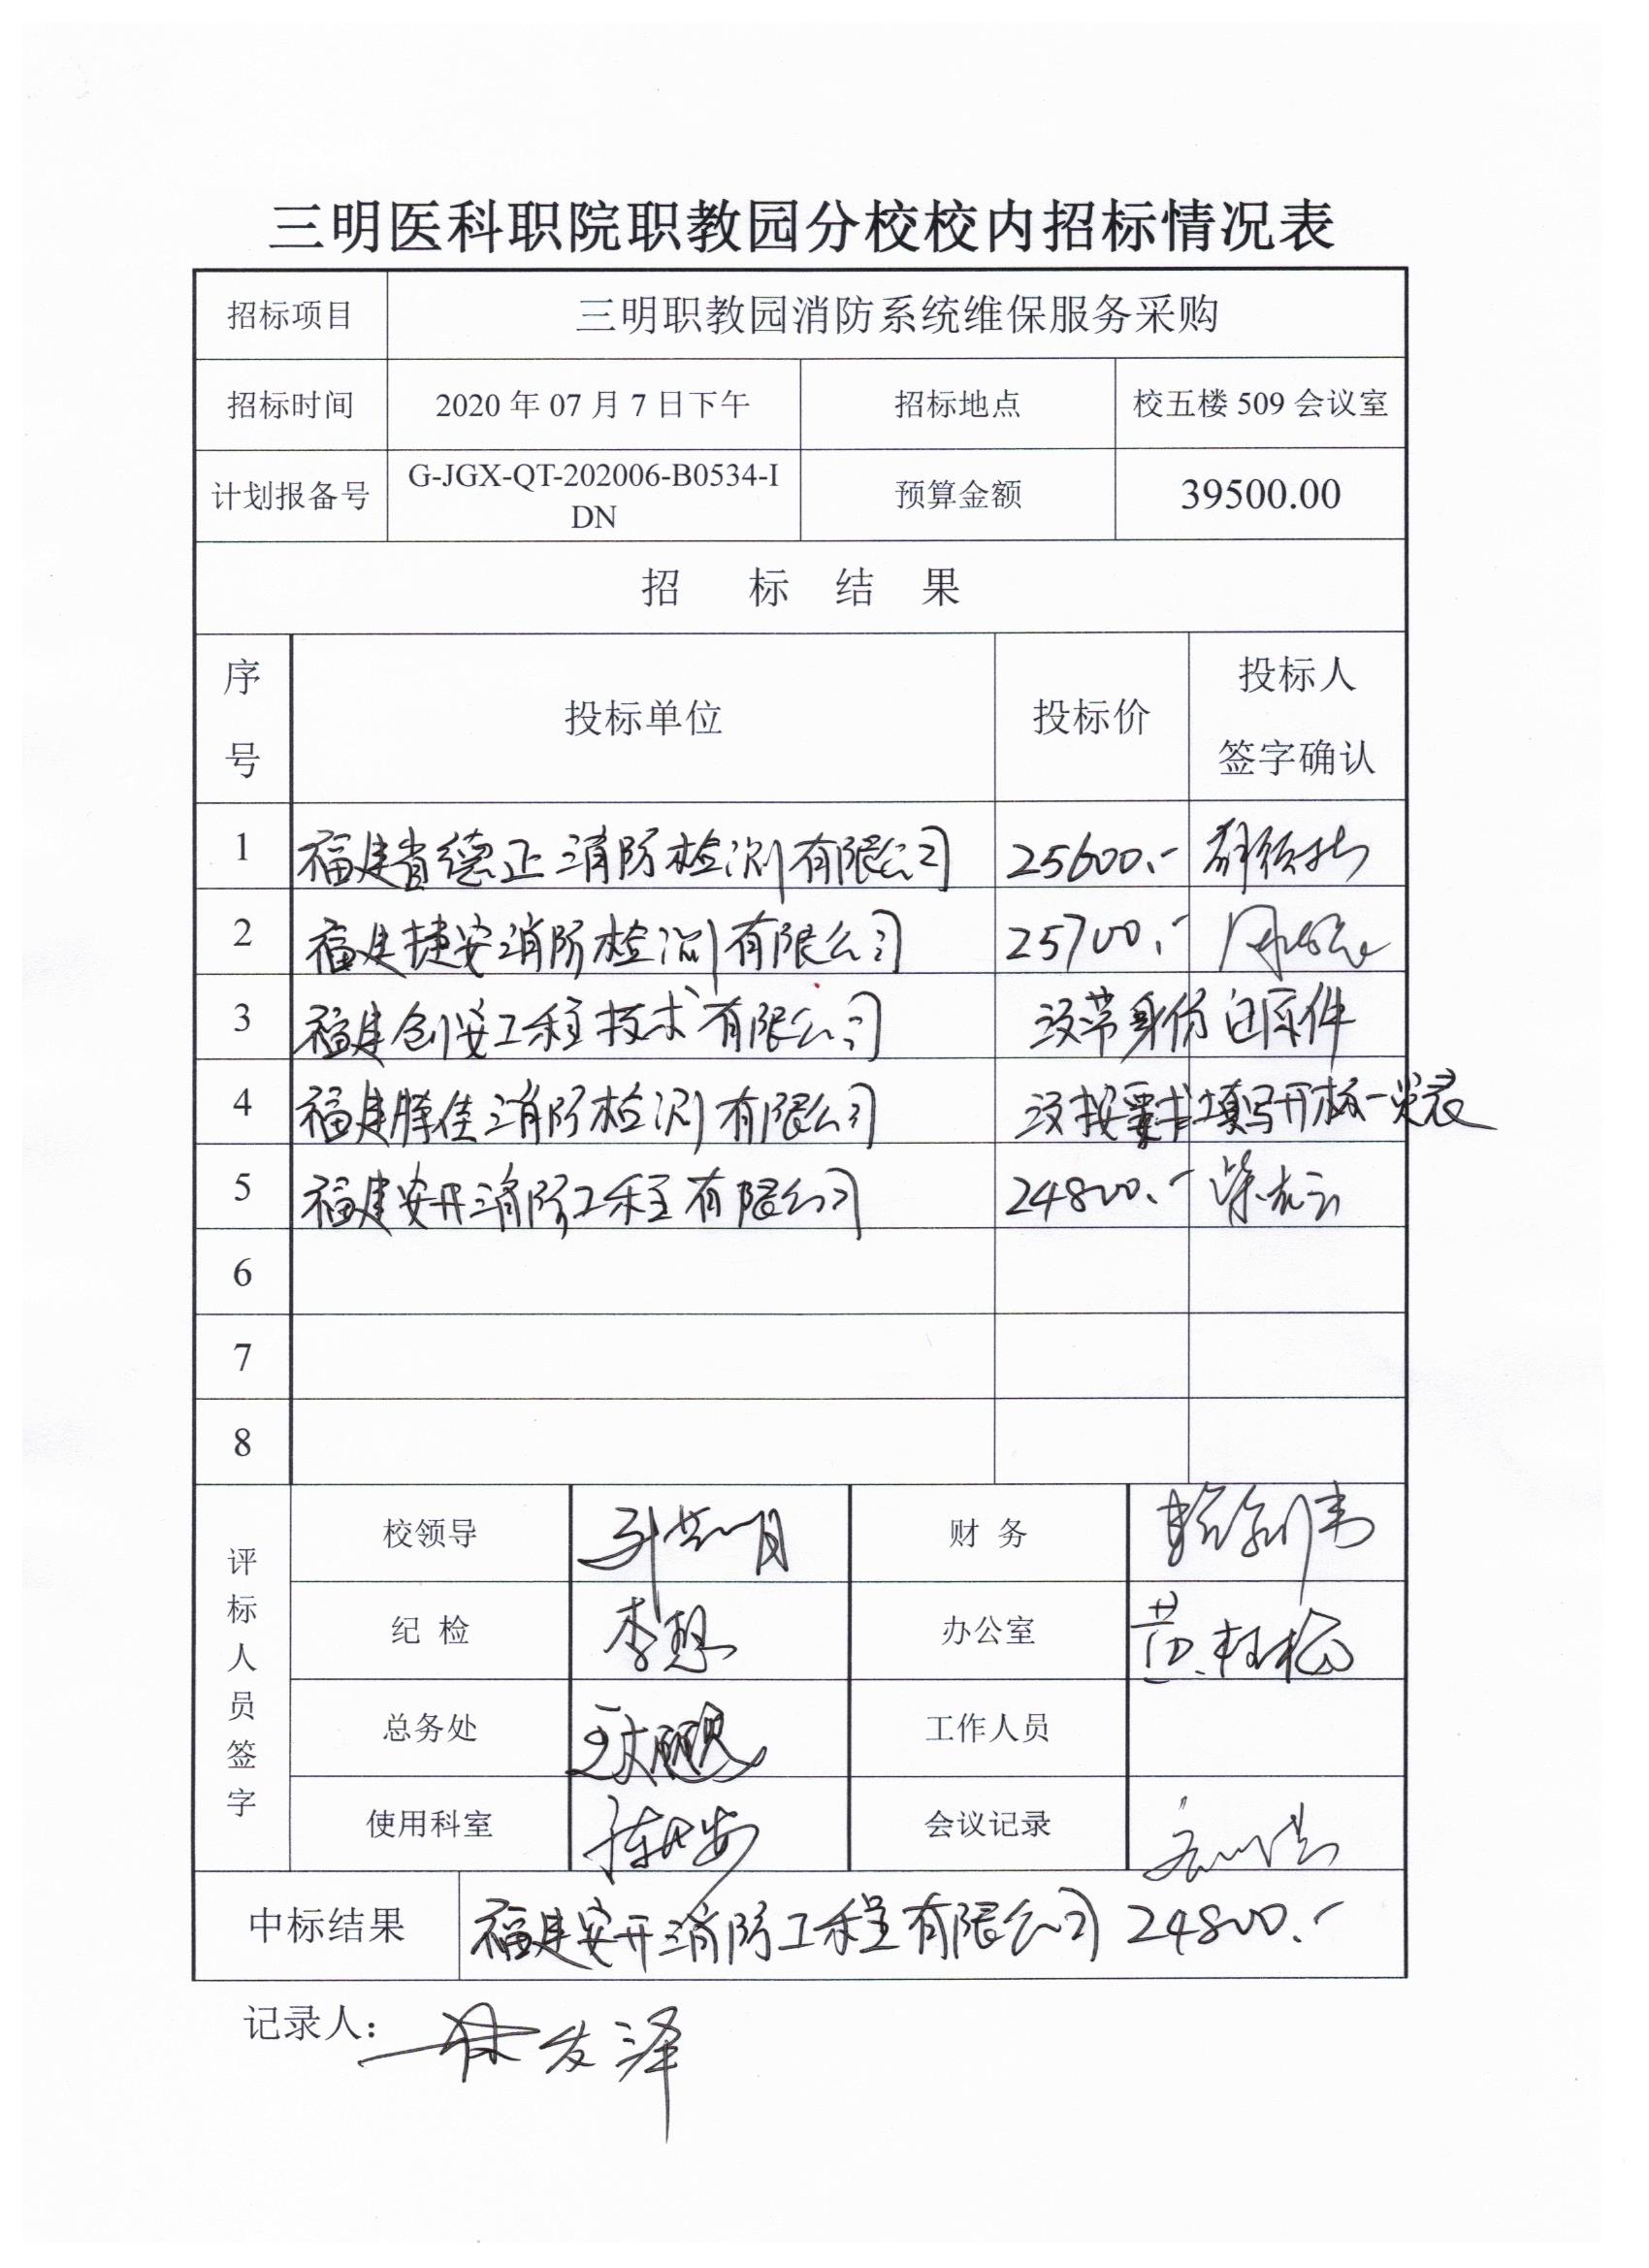 三明医科职院职教园分校校内招标情况表
招标项目 三明职教园消防系统维保服务采购
招标时间 2020年07月7日下午 招标地点 校五楼509会议室
计划报备号 G-JGX-QT-202006-B0534-I
DN 预算金额 39500.00
招 标 结 果
序号 投标单位 投标价 投标人
签字确认
1 福建省德正消防检测有限公司 25600.-
2 福建捷安消防检测有限公司 25700.-
3 福建创安工程技术有限公司 没带身份证原件
4 福建 佳消防检测有限公司 没按要求填写开标一览表
5 福建安开消防工程有限公司 24800.-
6
7
8
评标人员签字
校领导 财 务
纪 检 办公室 黄
总务处 工作人员
使用科室 会议记录
中标结果 福建安开消防工程有限公司 24800.-
记录人： 林发泽